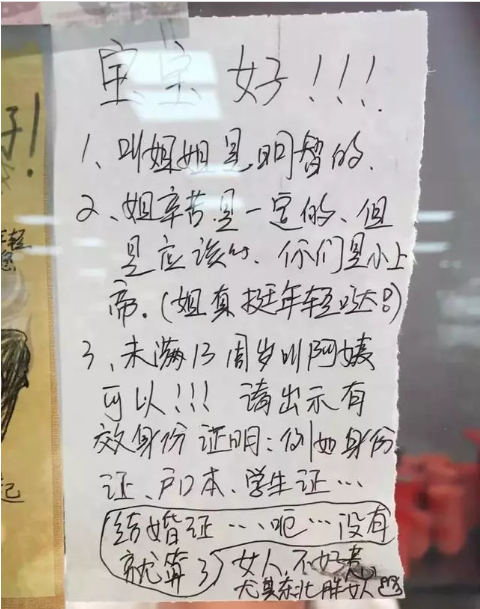 宝宝好!!!
1、叫姐姐是明智的、
2、姐辛苦是一定的、但
是应该的、你们是小上
帝.(姐真挺年轻哒!)
3、未满13周岁叫阿姨
可以!!! 请出示有
效身份证明:例如身份
证、户口本、学生证…
结婚证…呃…没有
就算了 女人不好惹
尤其东北胖女人
子!
年轻
记